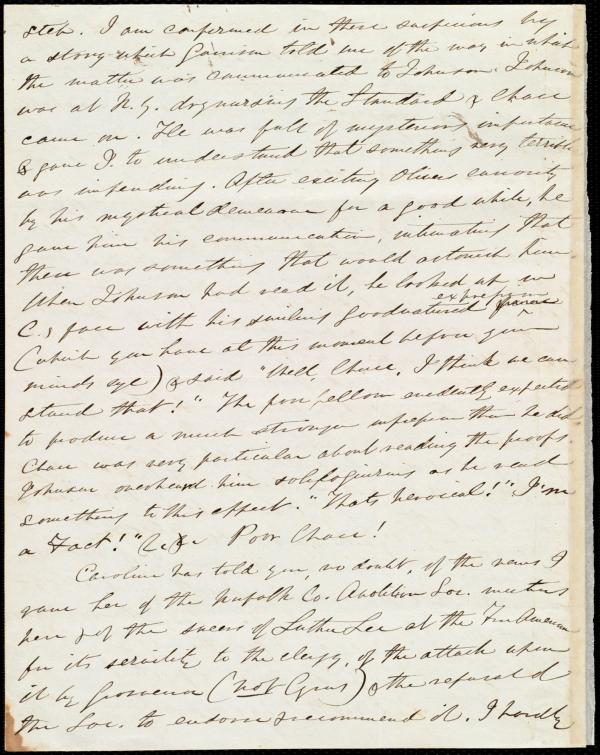 step. I am confirmed in these suspicions by
a story which Garrison told me of the way in which
the matter was communicated to Johnson. Johnson
was at N.Y. drynursing the Standard & Chace
came on. He was full of mysterious importance
& gave J. to understand that something very terrible
was impending. After exciting Olivers curiosity
by his mystical demeanor for a good while, he
gave him his communication, intimating that
there was something that would astonish him.
When Johnson had read it, he looked up in
C.s face with his smiling goodnatured expression
(which you have at this moment before your
minds eye) & said "Well, Chace, I think we can
stand that!" The poor fellow evidently expected
to produce a much stronger impression than he did.
Chace was very particular about reading the proofs.
Johnson overheard him soliloquizing as he read
something to this effect. "Thats heroical!" "I'm
a Fact!" &c &c Poor Chace!
Caroline has told you, no doubt, of the news I
gave her of the Norfolk Co. Abolition Soc. meeting
here & of the sneers of Luther Lee at the Free American
for its servility to the clergy, of the attack upon
it by Grosvenor (not Cyrus) & the refusal of
the Soc. to endorse or recommend it. I hardly